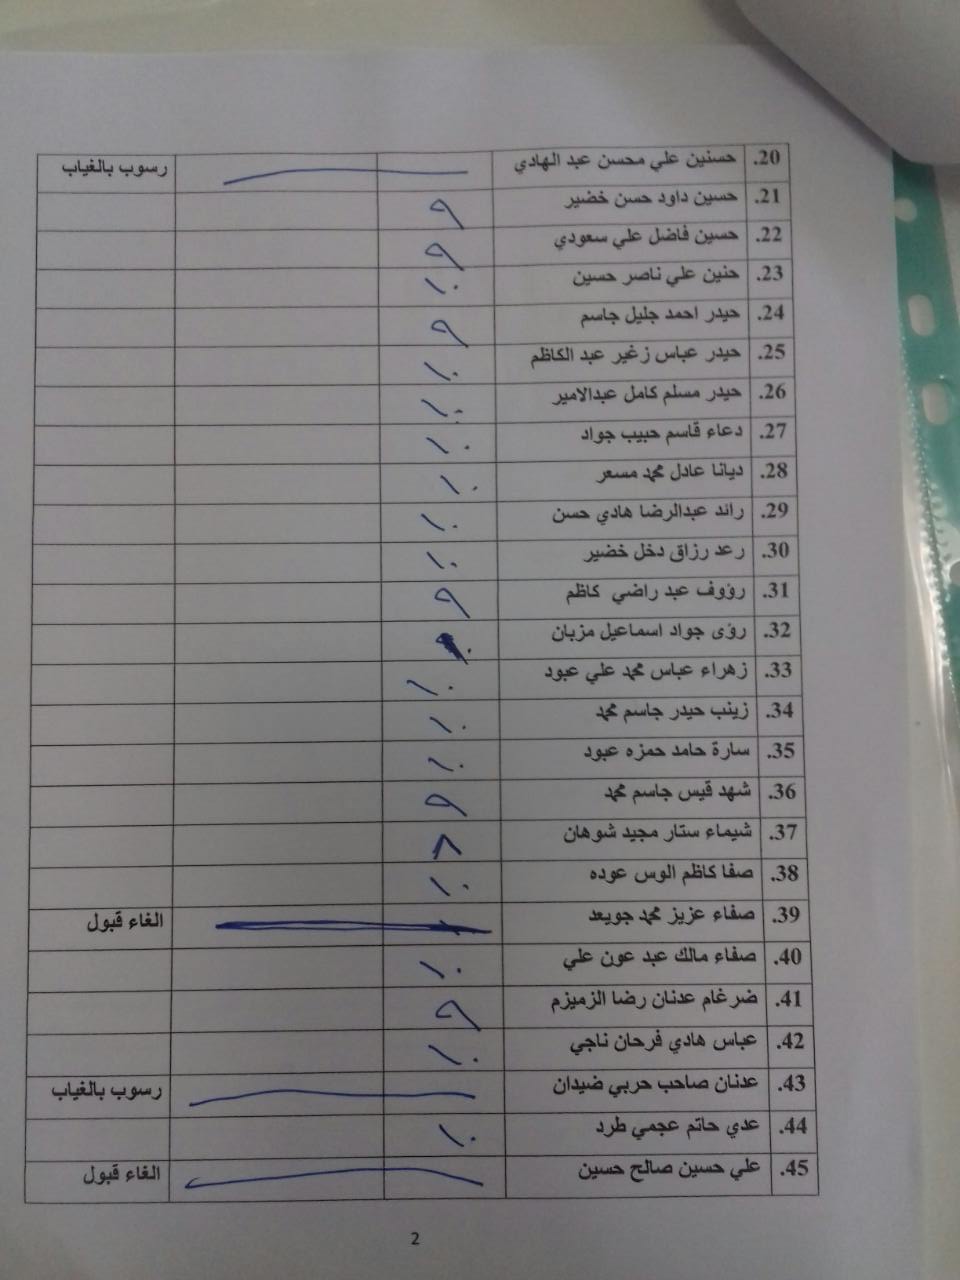 20. حسنين علي محسن عبد الهادي رسوب بالغياب
21. حسين داود حسن خضير ٩
22. حسين فاضل علي سعودي ٩
23. حنين علي ناصر حسين ١٠
24. حيدر احمد جليل جاسم ٩
25. حيدر عباس زغير عبد الكاظم ١٠
26. حيدر مسلم كامل عبدالامير ١٠
27. دعاء قاسم حبيب جواد ١٠
28. ديانا عادل محمد مسعر ١٠
29. رائد عبدالرضا هادي حسن ١٠
30. رعد رزاق دخل خضير ١٠
31. رؤوف عبد راضي كاظم ٩
32. رؤى جواد اسماعيل مزبان
33. زهراء عباس محمد علي عبود ١٠
34. زينب حيدر جاسم محمد ١٠
35. سارة حامد حمزه عبود ١٠
36. شهد قيس جاسم محمد ٩
37. شيماء ستار مجيد شوهان ٨
38. صفا كاظم الوس عوده ١٠
39. صفاء عزيز محمد جويعد الغاء قبول
40. صفاء مالك عبد عون علي ١٠
41. ضرغام عدنان رضا الزميزم ٩
42. عباس هادي فرحان ناجي ١٠
43. عدنان صاحب حربي ضيدان رسوب بالغياب
44. عدي حاتم عجمي طرد ١٠
45. علي حسين صالح حسين الغاء قبول
2